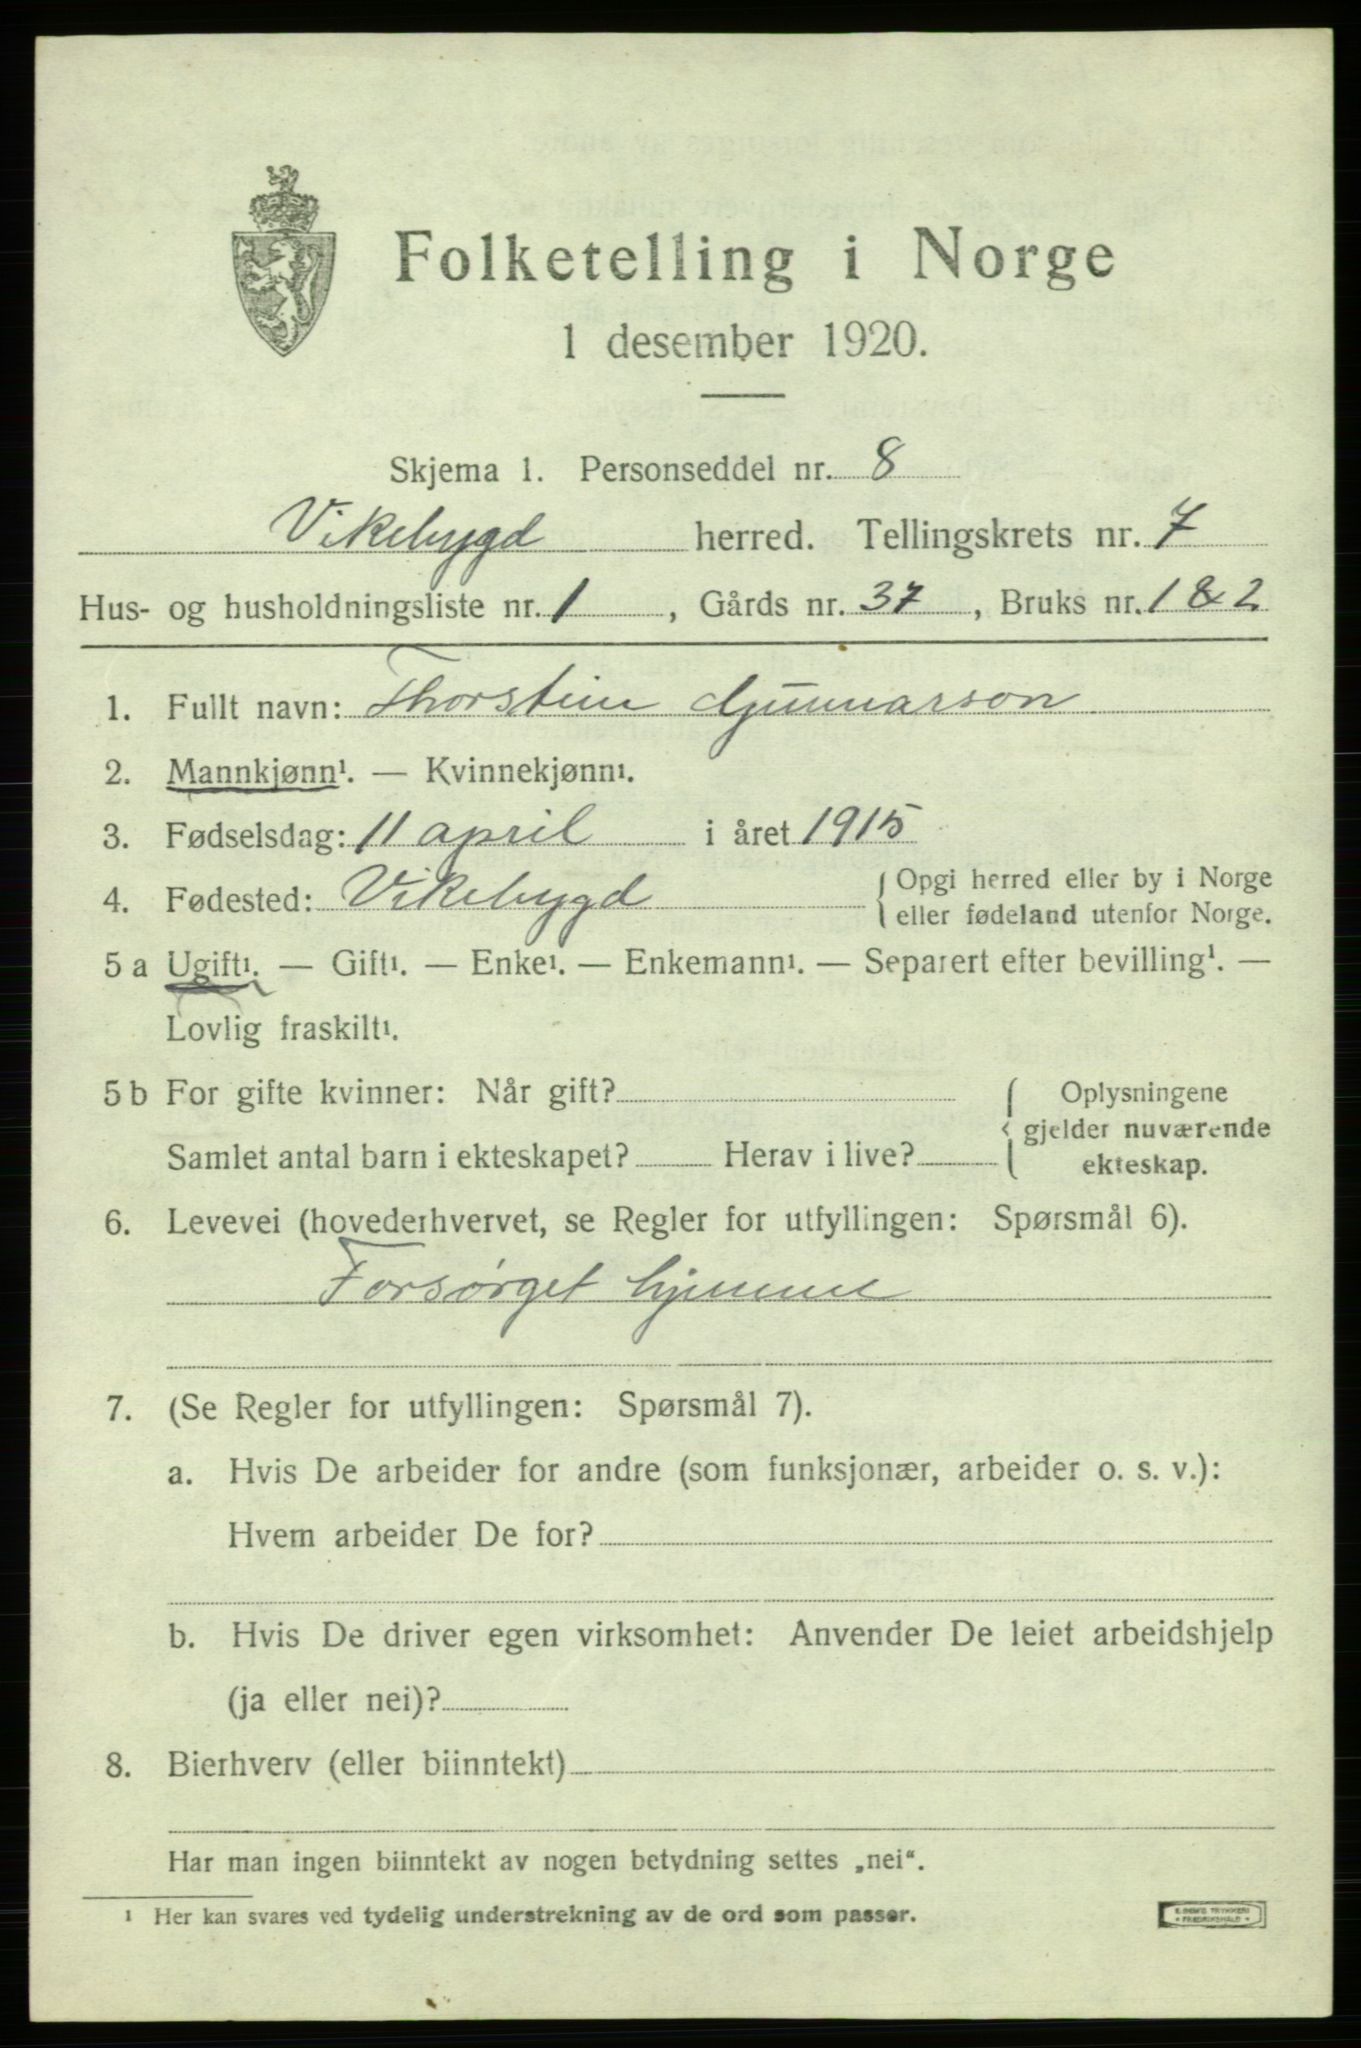 Folketelling i Norge
1 desember 1920.
Skjema 1. Personseddel nr. 8
Vikebygd herred. Tellingskrets nr. 7
Hus- og husholdningsliste nr. 1, Gårds nr. 37, Bruks nr. 1 & 2
1. Fullt navn: Thorstein Gunnarson
2. Mannkjønn¹. — Kvinnekjønn¹.
3. Fødselsdag: 11 april i året 1915
4. Fødested: Vikebygd { Opgi herred eller by i Norge
eller fødeland utenfor Norge.
5 a Ugift¹. — Gift¹. — Enke¹. — Enkemann¹. — Separert efter bevilling¹. —
Lovlig fraskilt¹.
5 b For gifte kvinner: Når gift? { Oplysningene
gjelder nuværende
Samlet antal barn i ekteskapet? Herav i live? ekteskap.
6. Levevei (hovederhvervet, se Regler for utfyllingen: Spørsmål 6).
Forsørget hjemme
7. (Se Regler for utfyllingen: Spørsmål 7).
a. Hvis De arbeider for andre (som funksjonær, arbeider o. s. v.):
Hvem arbeider De for?
b. Hvis De driver egen virksomhet: Anvender De leiet arbeidshjelp
(ja eller nei)?
8. Bierhverv (eller biinntekt)
Har man ingen biinntekt av nogen betydning settes „nei“.
¹ Her kan svares ved tydelig understrekning av de ord som passer.